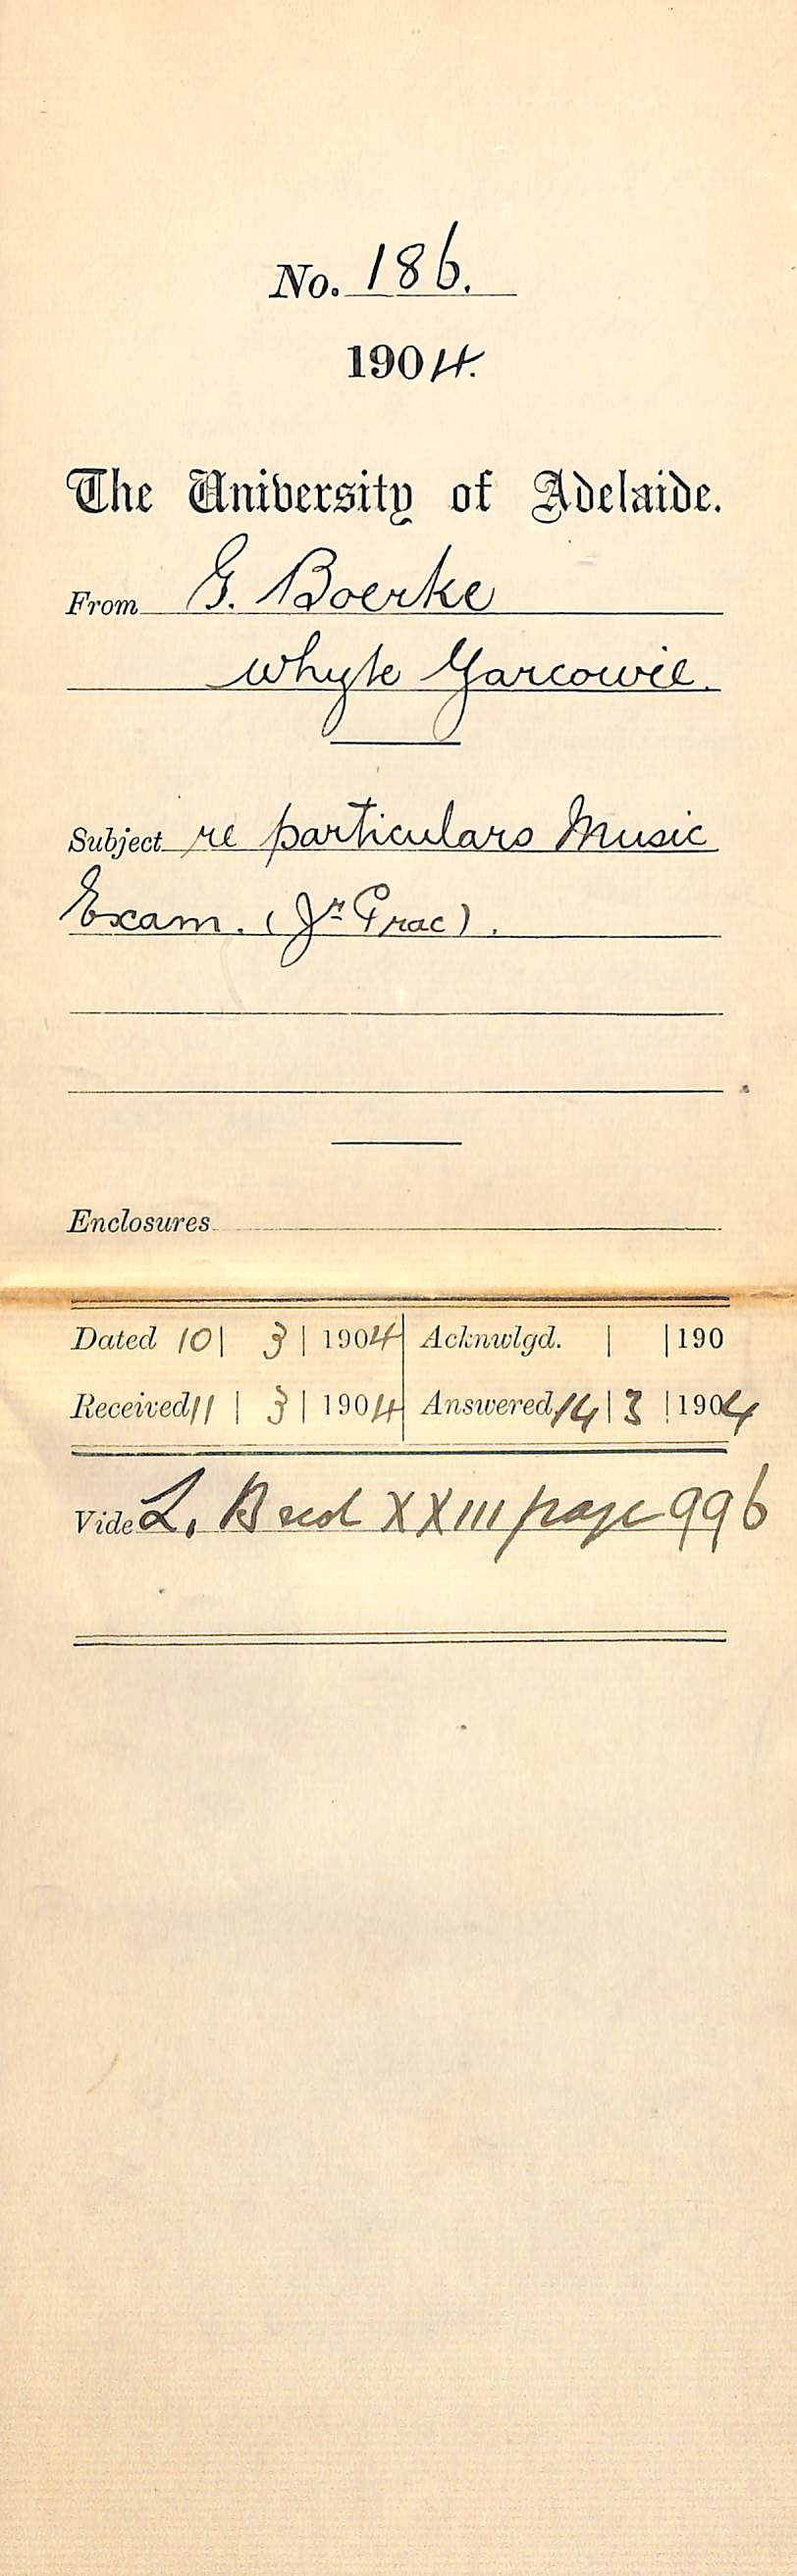 No. 186.
1904.
The University of Adelaide.
From G. Boerke
Whyte Yarcowie.
Subject re particulars Music
Exam. (Jr Prac).
Enclosures
Dated 10 | 3 | 1904 Acknwlgd. | | 190
Received 11 | 3 | 1904 Answered 14 | 3 | 1904
Vide L. B XXIII page 996